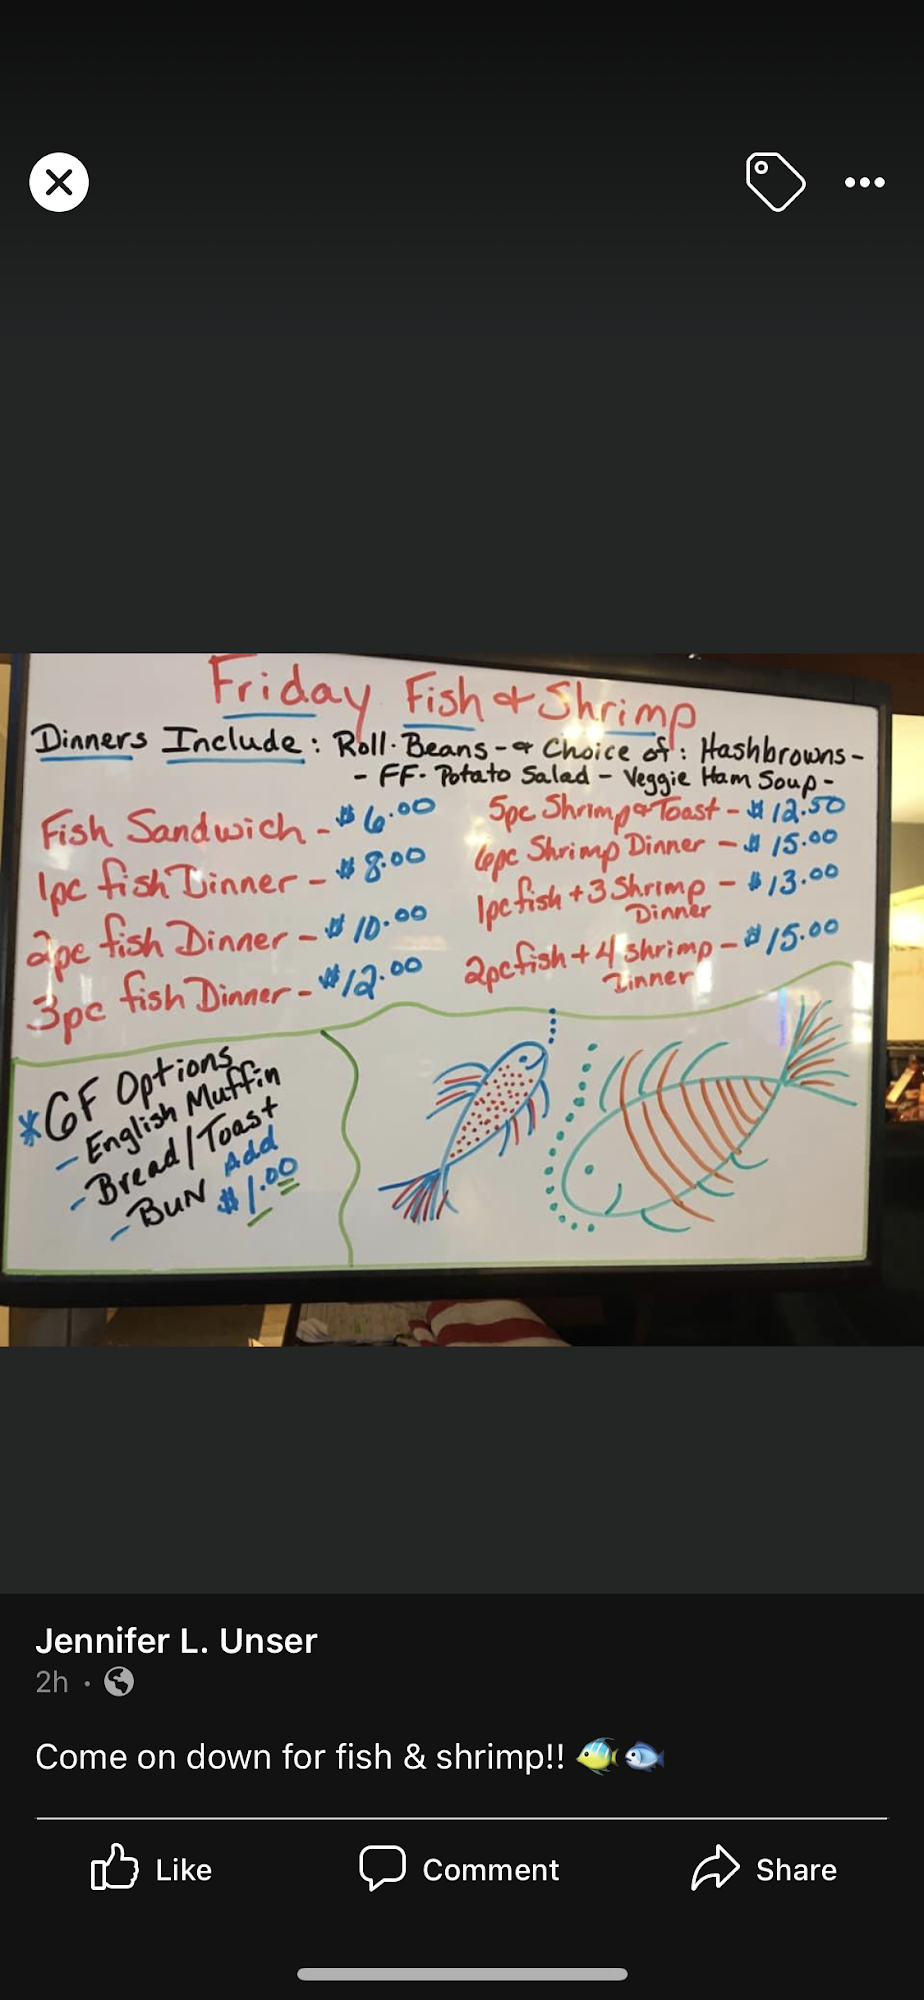 Friday Fish & Shrimp
Dinners Include: Roll. Beans - & Choice of: Hashbrowns -
- FF. Potato Salad - Veggie Ham Soup -
Fish Sandwich - $6.00
1pc fish Dinner - $8.00
2pc fish Dinner - $10.00
3pc fish Dinner - $12.00
5pc Shrimp & Toast - $12.50
6pc Shrimp Dinner - $15.00
1pc fish + 3 Shrimp - $13.00
Dinner
2pc fish + 4 Shrimp - $15.00
Dinner
*GF Options
- English Muffin
- Bread/Toast
- BUN Add
$1.00
Jennifer L. Unser
2h ·
Come on down for fish & shrimp!! 🐠🐟
Like
Comment
Share